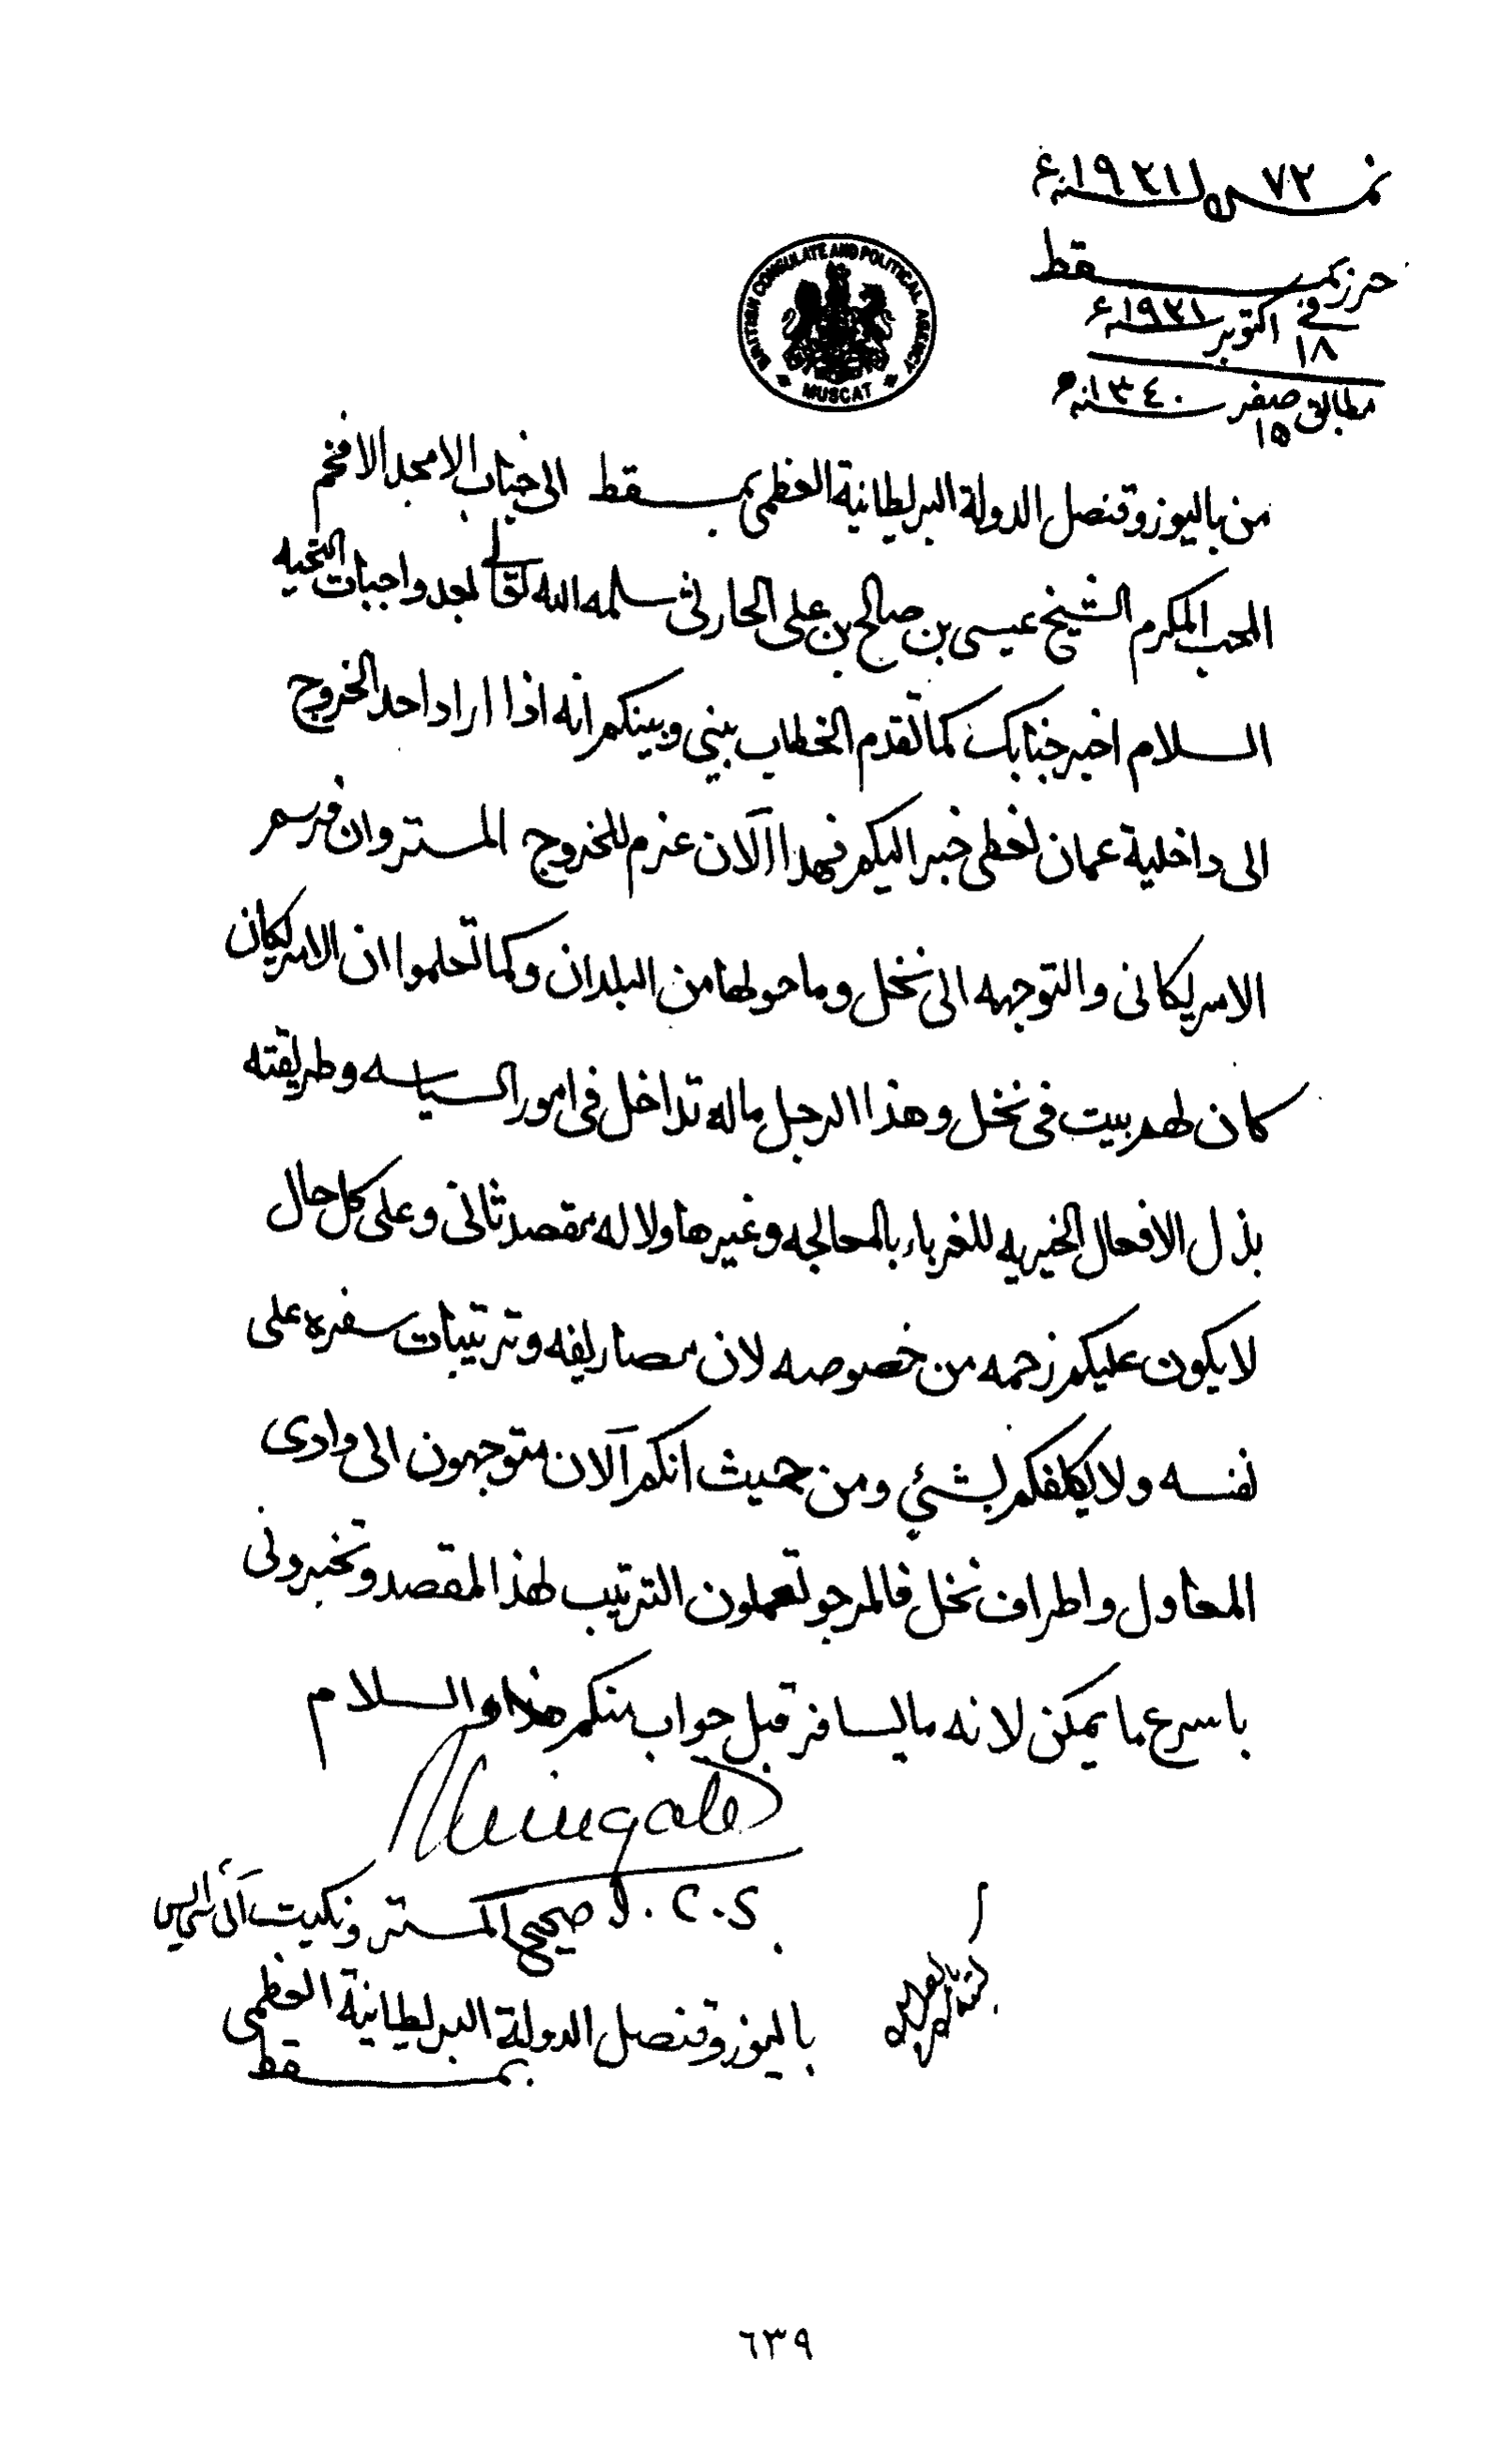 نمرة ٧٢ سنه ١٩٢١ء
حرر بمسقط
في ١٨ اكتوبر سنه ١٩٢١ء
مطابق ١٥ صفر سنه ١٣٤٠ه
BRITISH CONSULATE AND POLITICAL AGENCY
MUSCAT
من باليوز وقنصل الدولة البريطانية العظمى بمسقط الى جناب الامجد الافخم
المحب المكرم الشيخ عيسى بن صالح بن على الحارثى سلمه الله تعالى بعد واجبات التحيه
السلام اخبر جنابك كما تقدم الخطاب بيني وبينكم انه اذا اراد احد الخروج
الى داخلية عمان نعطى خبر اليكم فهذا الآن عزم للخروج المستر وان فرسم
الامريكانى والتوجهه الى نخل وما حولها من البلدان وكما تعلموا ان الامريكان
كان لهم بيت فى نخل وهذا الرجل ماله تداخل فى امور السياسه وطريقته
بذل الافعال الخيريه للغرباء بالمعالجه وغيرها ولا له مقصد ثانى وعلى كل حال
لا يكون عليكم زحمه من خصوصه لان مصاريفه وترتيبات سفره على
نفسه ولا يكلفكم بشئي ومن حيث انكم الآن متوجهون الى وادى
المعاول واطراف نخل فالمرجو تعملون الترتيب لهذا المقصد وتخبرونى
باسرع ما يمكن لانه ما يسافر قبل جواب منكم هذا والسلام
Wingate
I.C.S. صحيح المستر ونكيت آئى سي ايس
باليوز وقنصل الدولة البريطانية العظمى
بمسقط
٦٣٩